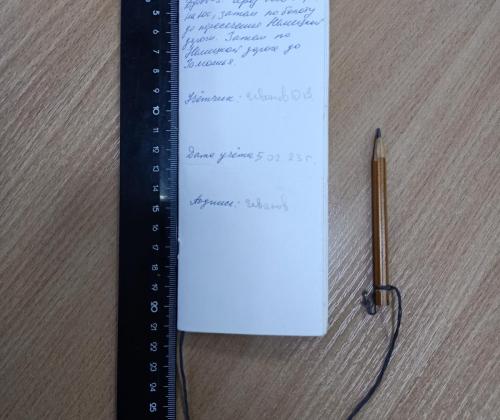 на юг, затем по болоту
до пересечения Немецкой
дороги. Затем по
Немецкой дороге до
Замошья.
Учётчик: Иванов О.В.
Дата учёта 5.02.23г.
Подпись: Иванов
5
6
7
8
9
10
11
12
13
14
15
16
17
18
19
20
21
22
23
24
25